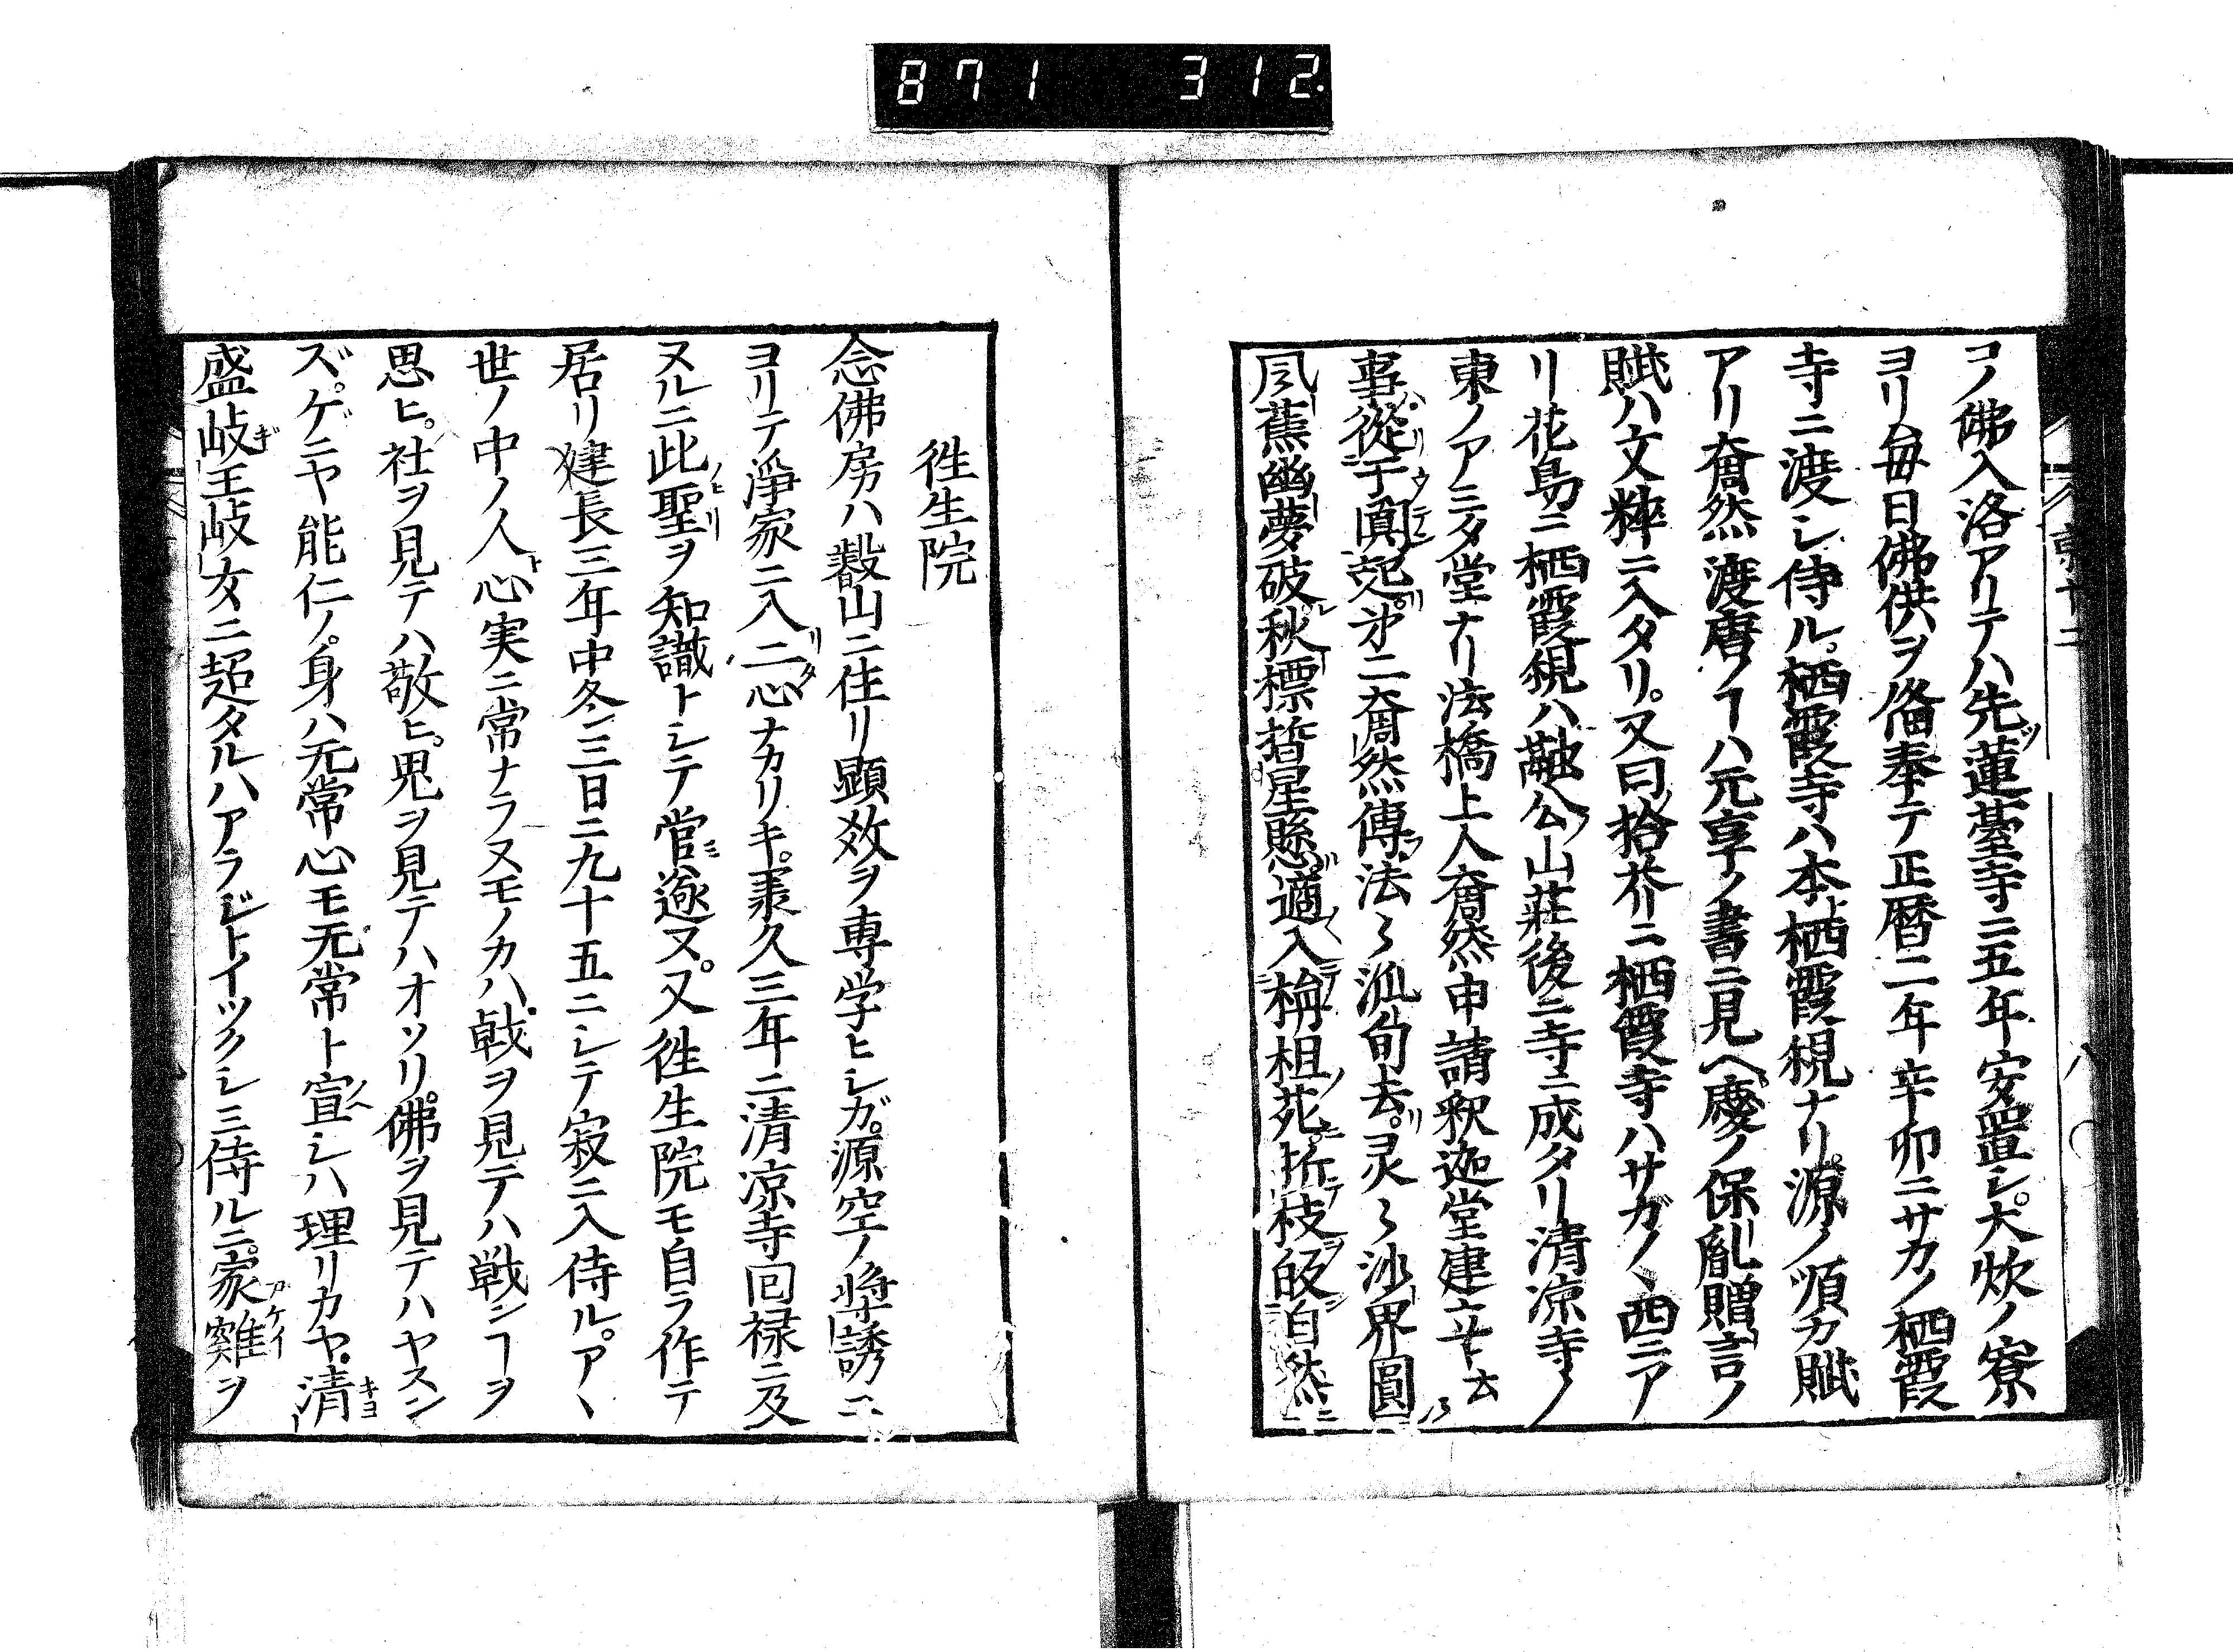 871 312.
コノ佛入洛アリテハ先蓮臺寺ニ五年安置シ。大炊ノ寮
ヨリ毎日佛供ヲ俻奉テ正暦二年辛卯ニサカノ栖霞
寺ニ渡シ侍ル。栖霞寺ハ本栖霞観ナリ。源ノ順カ賦
アリ奝然渡唐ノヿハ元亨ノ書ニ見ヘ慶ノ保胤贈言ノ
賦ハ文粹ニ入タリ。又曰拾芥ニ栖霞寺ハサガノヽ西ニア
リ花鳥ニ栖霞観ハ融公山莊後ニ寺ニ成タリ清凉寺ノ
東ノアミタ堂ナリ法橋上人奝然申請釈迦堂建立ト云
事從于真起。才二奝然傳法々泒旬去。灵々沙界圓
風蕉幽夢破秋標指星懸。適入栴柤苑。折枝皈自然
往生院
念佛房ハ叡山ニ住リ顕敎ヲ専学ヒシガ。源空ノ奨誘ニ
ヨリテ淨家ニ入二心ナカリキ。羕久三年ニ清凉寺回禄ニ及
ヌルニ此聖ヲ知識トシテ営遂ヌ。又往生院モ自ラ作テ
居リ建長三年中冬三日ニ九十五ニシテ寂ニ入侍ル。アヽ
世ノ中ノ人心実ニ常ナラヌモノカハ。戟ヲ見テハ戦シヿヲ
思ヒ。社ヲ見テハ敬ヒ。兇ヲ見テハオソリ。佛ヲ見テハヤスン
ズ。ゲニヤ能仁ノ。身ハ无常心モ无常ト宣シハ理リカヤ。清
盛岐王岐女ニ超タルハアラジトイツクシミ侍ルニ。家雞ヲ